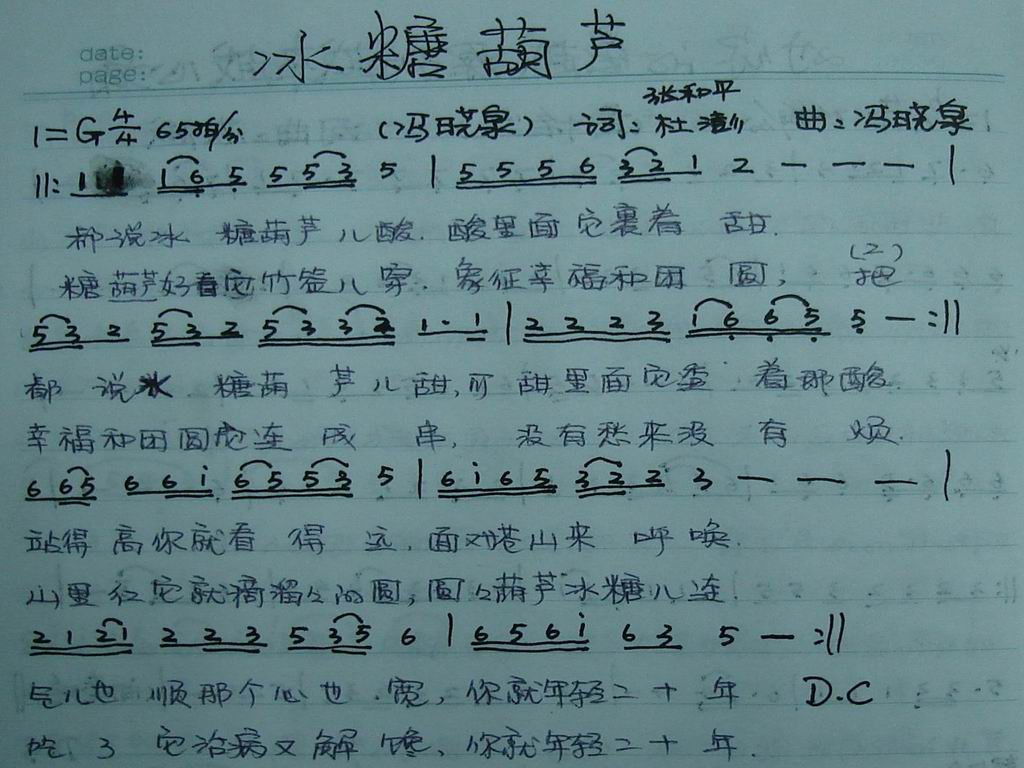 date:
page:
冰糖葫芦
1=G 4/4 65拍/分 (冯晓泉) 词:张和平 杜澎 曲:冯晓泉
||: 1 1 1 6 5 5 5 3 5 | 5 5 5 6 3 2 1 2 — — — |
都说冰 糖葫芦儿酸. 酸里面它裹着 甜.
糖葫芦好看它竹签儿穿. 象征幸福和团 圆, (2)把
5 3 2 5 3 2 5 3 3 2 1 · 1 | 2 2 2 3 1 6 6 5 5 — :||
都 说 冰 糖葫 芦儿甜,可 甜里面它透 着那酸
幸福和团圆它连 成 串, 没有愁来没 有 烦.
6 6 5 6 6 i 6 5 5 3 5 | 6 i 6 5 3 2 2 3 — — — |
站得 高你就看 得 远, 面对苍山来 呼 唤.
山里红它就滴溜々的圆, 圆々葫芦冰糖儿连
2 1 2 1 2 2 3 5 3 5 6 | 6 5 6 i 6 3 5 — :||
气儿也 顺那个心也 宽, 你就年轻二十 年 D.C
吃 了 它治病又解 馋, 你就年轻二十 年.